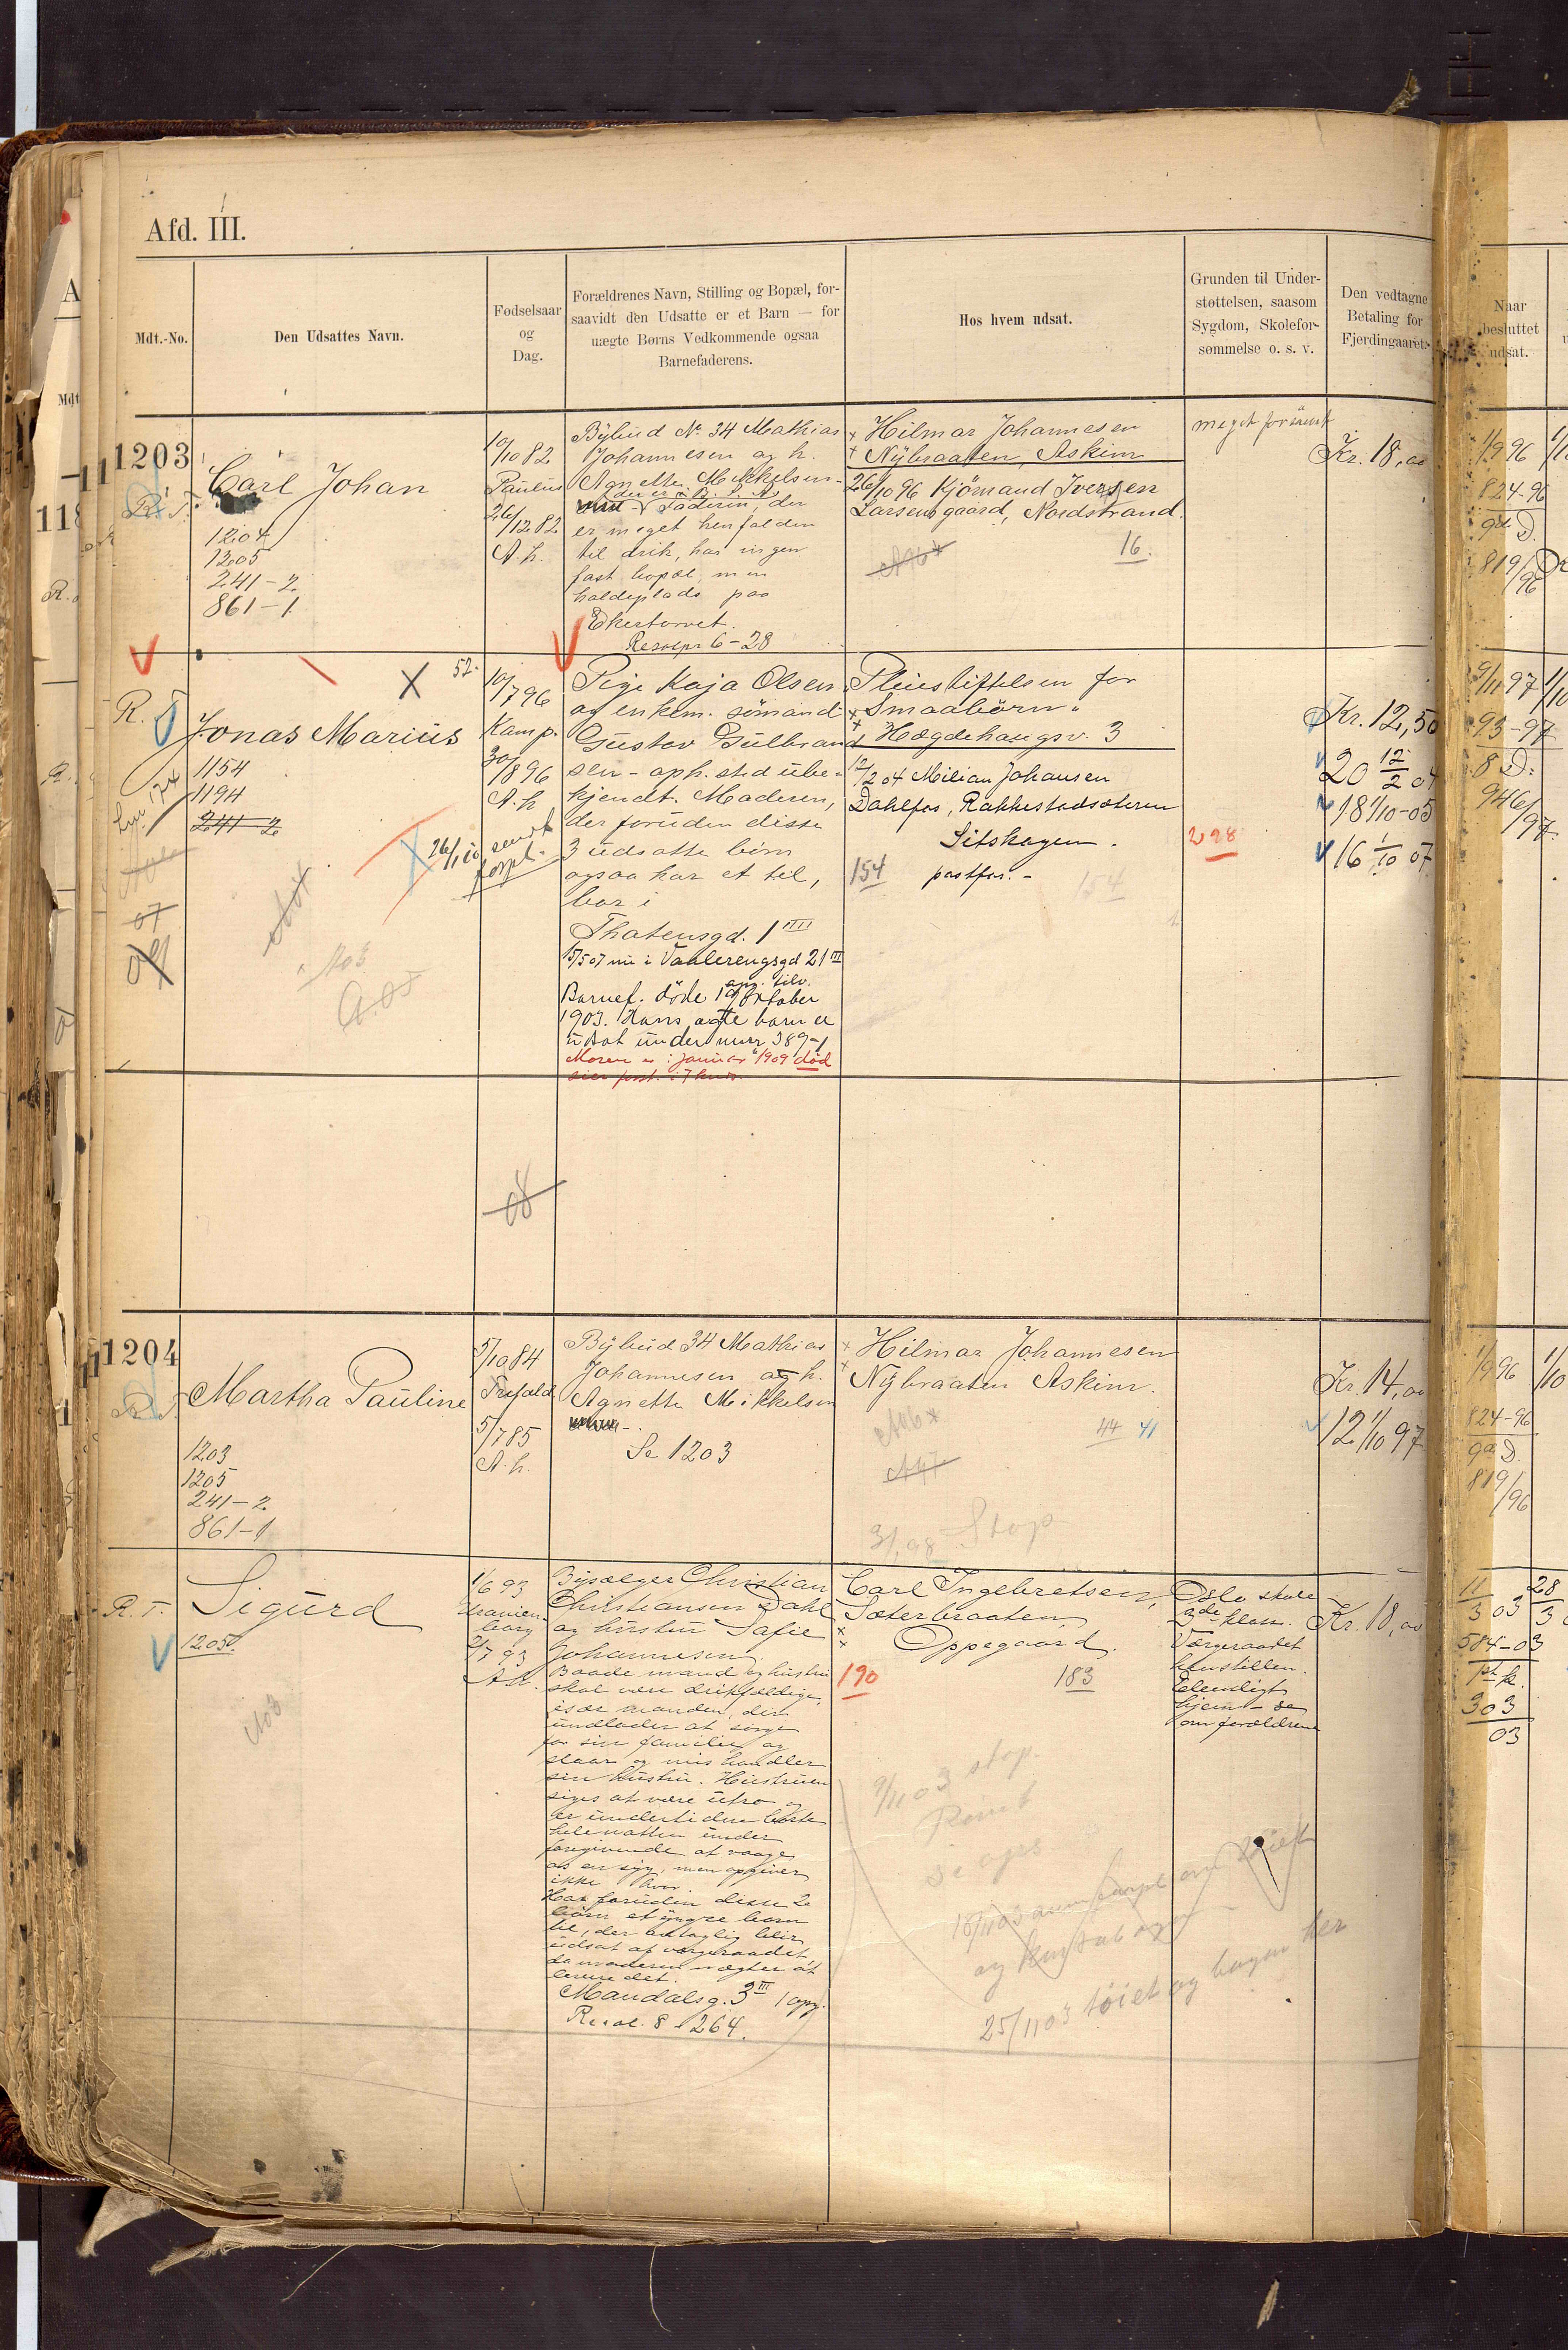 Afd. III.
Mdt.-No.
Den Udsattes Navn.
Fødselsaar
og
Dag.
Forældrenes Navn, Stilling og Bopæl, for-
saavidt den Udsatte er et Barn — for
uægte Børns Vedkommende ogsaa
Barnefaderens.
Hos hvem udsat.
Grunden til Under-
støttelsen, saasom
Sygdom, Skolefor-
sømmelse o. s. v.
Den vedtagne
Betaling for
Fjerdingaaret.
Naar
besluttet
udsat.
1203
R. T.
Carl Johan
1204
1205
241-2
861-1
10/10 82
Paulus
26/12 82
A. h.
Bybud No. 34 Mathias
Johannesen og h.
Agnette Mikkelsen
Faderen, der
er meget henfalden
til drik, har ingen
fast bopæl, men
holdeplads paa
Ekertorvet.
6-28
Hilmar Johannesen
Nybraaten, Askim
26/10 96 Kjømand Iversen
Larsens gaard, Nordstrand.
16.
meget forsømt
Kr. 18,00
1/9 96
824-96
9de D.
819/96
R. T.
Jonas Marius
1154
1194
241-2
52.
10/7 96
Kamp.
30/8 96
A. h
26/1 10 sendt
forpl.
Pige Kaja Olsen
og enkem. sømand
Gustav Gulbrand
sen - oph.sted ube-
kjendt. Moderen,
der foruden disse
3 udsatte børn
ogsaa har et til,
bor i
Thatensgd. 1 IIII
15/5 07 nu i Vaalerengsgd 21 III
Barnef. døde 1 Oktober
1903. Hans ægte barn er
udsat under 389-1
Moren er i januar 1909 død
Pleiestiftelsen for
Smaabørn
Hægdehaugsv. 3
12/2 04 Milian Johansen
Dahlfos, Rakkestadsæteren
Sitskogen.
154 postfor. -
154
298
Kr. 12,50
20 12/2 04
18 1/10-05
16 1/10 07
9/11 97
93-97
8 D.
946/97
08
1204
R. T.
Martha Pauline
1203
1205
241-2
861-1
5/10 84
Trefold.
5/7 85
A. h.
Bybud 34 Mathias
Johannesen og h.
Agnette Mikkelsen
Se 1203
Hilmar Johannesen
Nybraaten Askim.
44 41
3/1 98 Stop
Kr. 14,00
12 1/10 97
1/9 96
824-96
9de D.
819/96
R. T.
Sigurd
1205.
1/6 93
Uranien-
borg
2/7 93
A.h.
Christian
Christiansen Dahl
og hustru Safie
Johannesen
Baade mand og hustru
skal være drikfældige,
især manden, der
undlader at sørge
for sin familie og
slaar og mishandler
sin hustru. Hustruen
siges at være utro og
er undertiden borte
hele natten under
foregivende at vaage
os en syg, men opgiver
ikke hvor.
Har foruden disse 2
børn et yngre barn
til, der antaglig blir
udsat af værgeraadet,
da moderen nægter at
levere det.
Mandalsg. 3 III 1 opg.
Resol. 8-264.
Carl Ingebretsen,
Sæterbraaten,
Oppegaard.
190
183
9/11 03 stop.
Rømt
25/11 03 tøiet og bøger her
Oslo skole
3de klasse.
Værgeraadet
henstillen.
Elendigt
hjem - se
om forældrene
Kr. 18,00
11/3 03
584-03
303
03